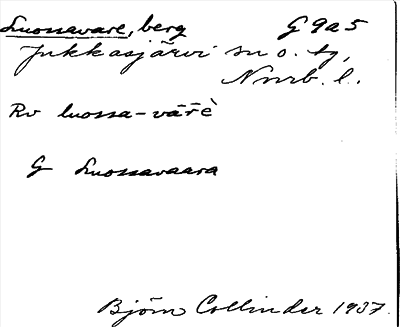 Luossavare, berg G9a5
Jukkasjärvi sn o. tg,
Nnrb. l.
Rv luossa-vārè
G Luossavaara
Björn Collinder 1937.